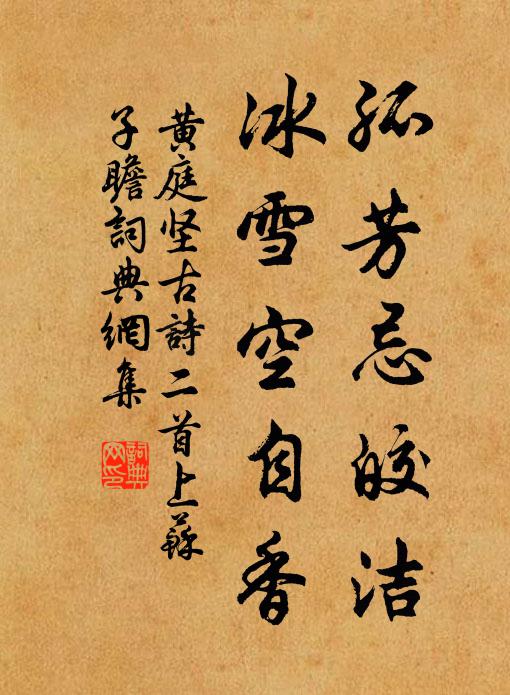 孤芳忌皎洁
冰雪空自香
黄庭坚古詩二首上蘇
子瞻詞典網集
詞典
网印